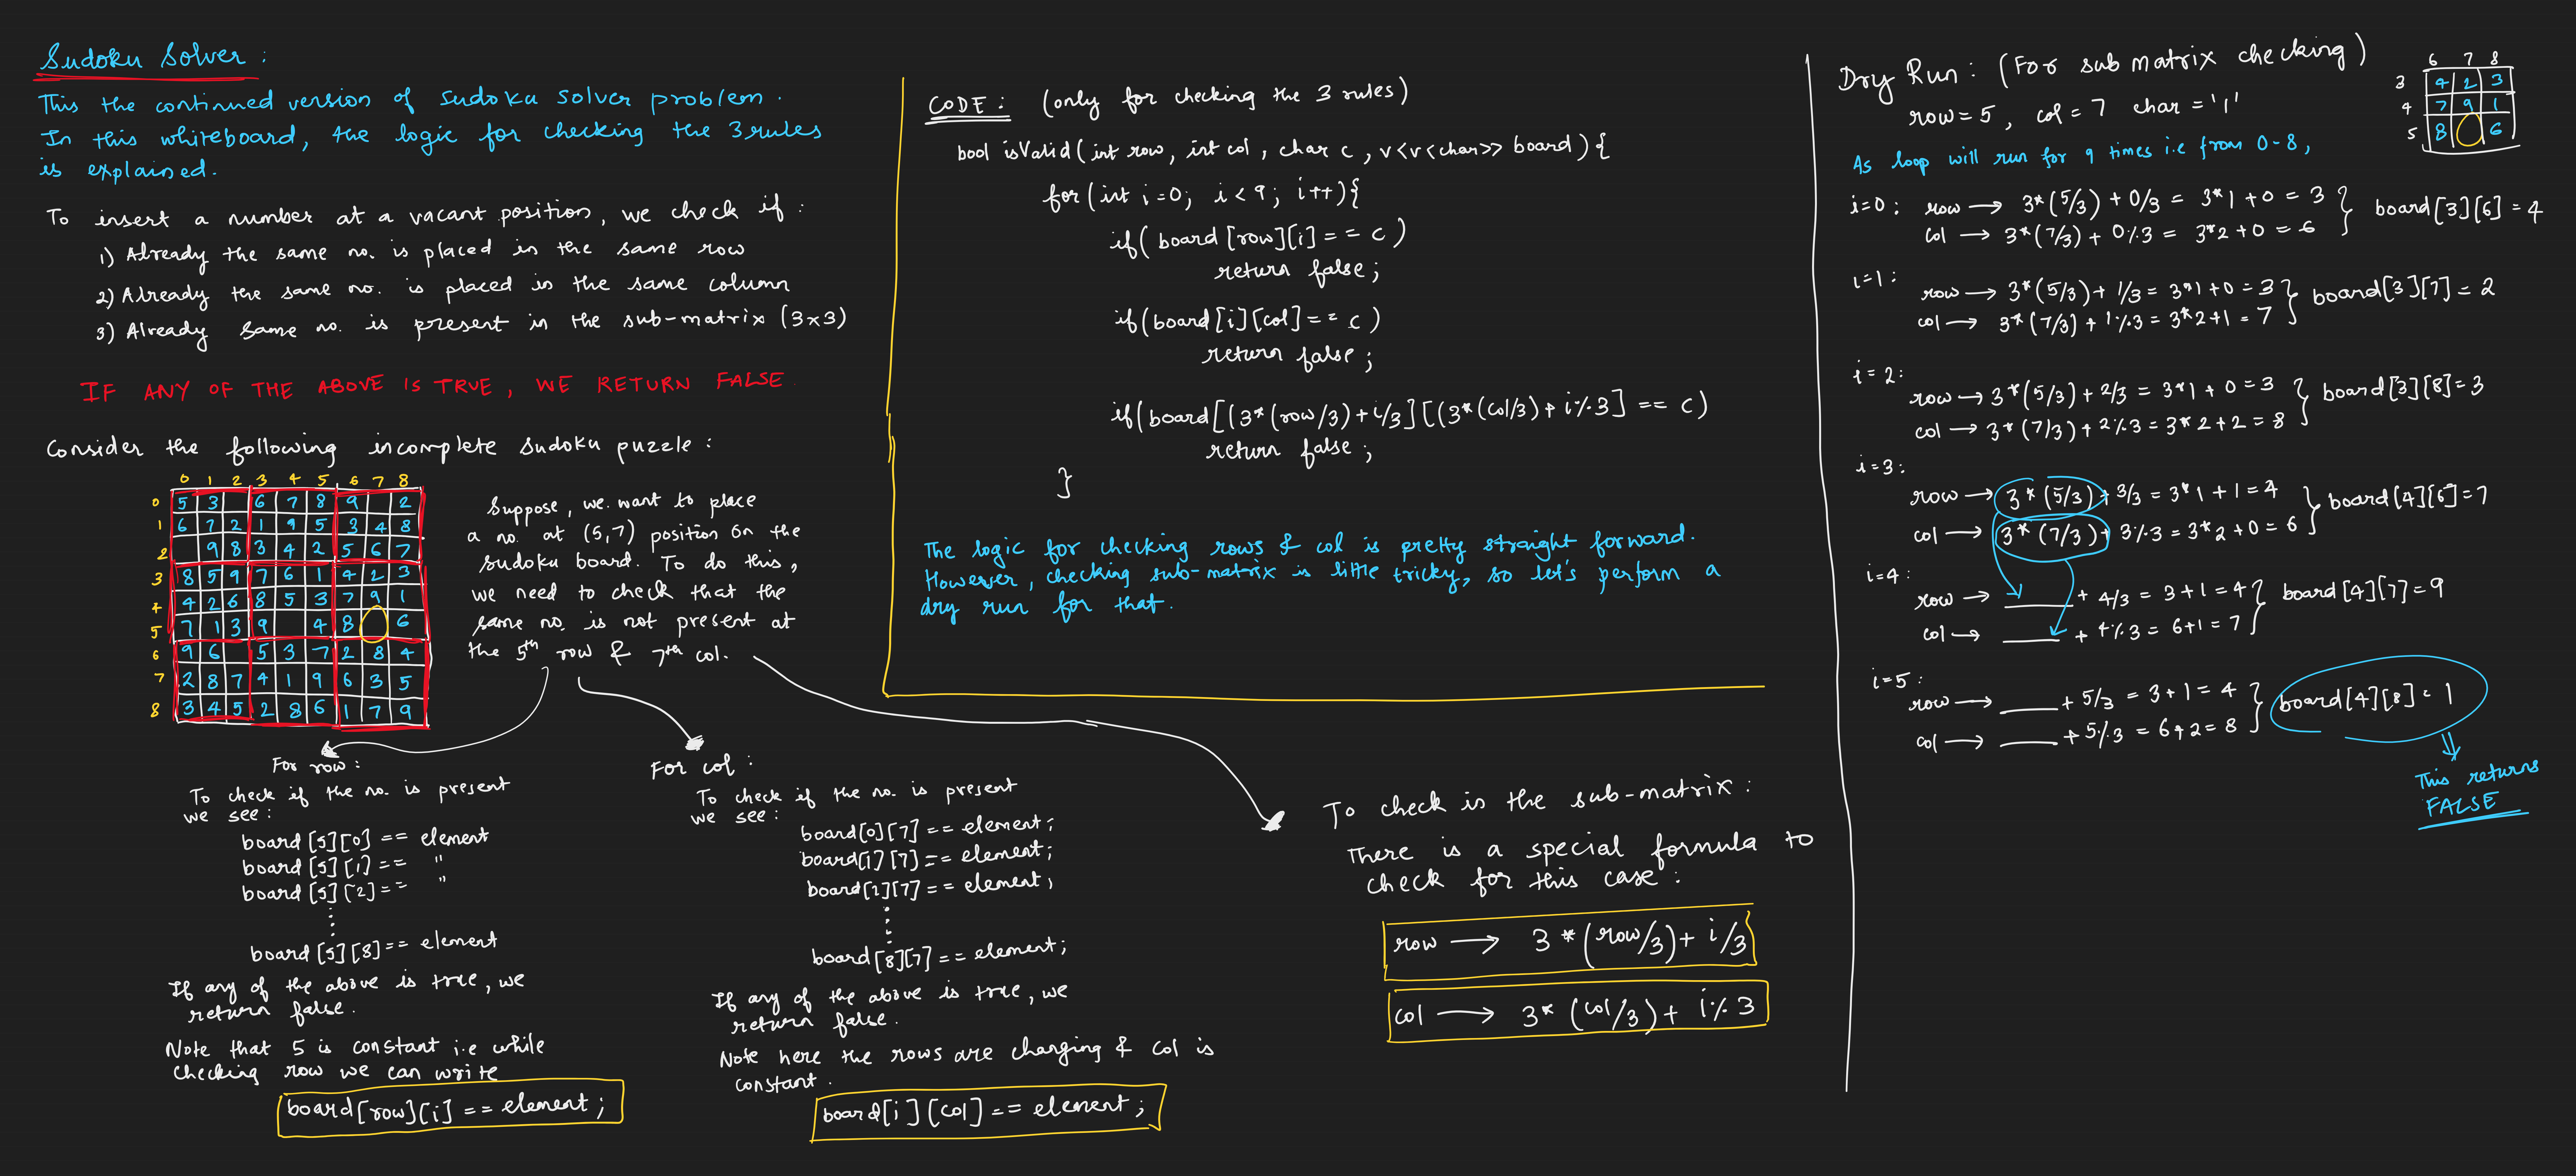 Sudoku Solver :
This the continued version of Sudoku Solver problem.
In this whiteboard, the logic for checking the 3 rules
is explained.
To insert a number at a vacant position, we check if :
1) Already the same no. is placed in the same row
2) Already the same no. is placed in the same column
3) Already same no. is present in the sub-matrix (3x3)
IF ANY OF THE ABOVE IS TRUE, WE RETURN FALSE.
Consider the following incomplete Sudoku puzzle :
0 1 2 3 4 5 6 7 8
0 5 3 6 7 8 9 2
1 6 7 2 1 9 5 3 4 8
2 9 8 3 4 2 5 6 7
3 8 5 9 7 6 1 4 2 3
4 4 2 6 8 5 3 7 9 1
5 7 1 3 9 4 8 6
6 9 6 5 3 7 2 8 4
7 2 8 7 4 1 9 6 3 5
8 3 4 5 2 8 6 1 7 9
Suppose, we want to place
a no. at (5,7) position on the
sudoku board. To do this,
we need to check that the
same no. is not present at
the 5th row & 7th col.
For row :
To check if the no. is present
we see :
board[5][0] == element
board[5][1] == "
board[5][2] == "
board[5][8] == element
If any of the above is true, we
return false.
Note that 5 is constant i.e while
checking row we can write
board[row][i] == element ;
For col :
To check if the no. is present
we see :
board[0][7] == element;
board[1][7] == element;
board[2][7] == element;
board[8][7] == element;
If any of the above is true, we
return false.
Note here the rows are changing & col is
constant.
board[i][col] == element ;
To check in the sub-matrix :
There is a special formula to
check for this case :
row → 3 * (row/3) + i/3
col → 3* (col/3) + i%3
CODE : (only for checking the 3 rules)
bool isValid(int row, int col, char c, v<v<char>> board){
for(int i=0; i<9; i++){
if(board[row][i] == c)
return false;
if(board[i][col] == c)
return false;
if(board[(3*(row/3)+i/3][(3*(col/3)+i%3] == c)
return false;
}
The logic for checking rows & col is pretty straight forward.
However, checking sub-matrix is little tricky, so let's perform a
dry run for that.
Dry Run : (For sub matrix checking)
row = 5, col = 7 char = '1'
6 7 8
3 4 2 3
4 7 9 1
5 8 6
As loop will run for 9 times i.e from 0-8,
i=0 : row → 3*(5/3) + 0/3 = 3*1 + 0 = 3
col → 3*(7/3) + 0%3 = 3*2 + 0 = 6
board[3][6] = 4
i=1 : row → 3*(5/3) + 1/3 = 3*1+0 = 3
col → 3*(7/3) + 1%3 = 3*2+1 = 7
board[3][7] = 2
i=2:
row → 3*(5/3) + 2/3 = 3*1 + 0 = 3
col → 3*(7/3) + 2%3 = 3*2+2 = 8
board[3][8] = 3
i=3:
row → 3*(5/3) + 3/3 = 3*1 + 1 = 4
col → 3*(7/3) + 3%3 = 3*2+0 = 6
board[4][6] = 7
i=4 :
row → ____ + 4/3 = 3+1 = 4
col → ____ + 4%3 = 6+1 = 7
board[4][7] = 9
i=5 :
row → ____ + 5/3 = 3+1 = 4
col → ____ + 5%3 = 6+2 = 8
board[4][8] = 1
This returns
FALSE